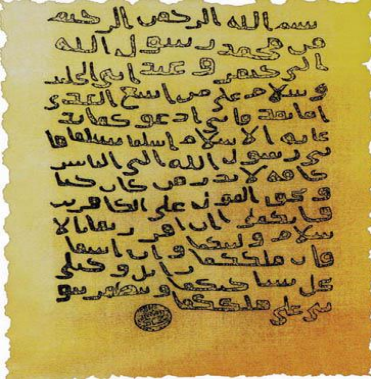 بسم الله الرحمن الرحيم
من محمد رسول الله
الى جيفر وعبد ابني الجلند
ى سلام على من اتبع الهدى
اما بعد فاني ادعوكما بد
عايه الاسلام اسلما تسلما فا
ني رسول الله الى الناس
كافه لانذر من كان حيا
ويحق القول على الكافرين
فانكما ان اقررتما بالا
سلام وليتكما وان ابيتما
فان ملككما زايل وخيلي
تحل بساحتكما وتظهر نبو
تي على ملككما